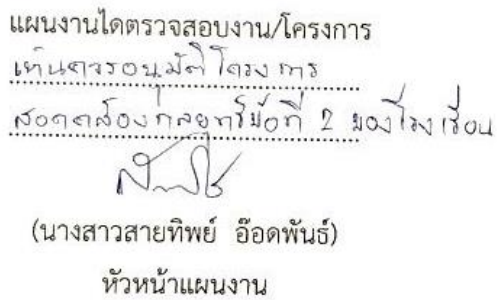 แผนงานได้ตรวจสอบงาน/โครงการ
เห็นควรอนุมัติโครงการ
สอดคล้องกลยุทธ์ข้อที่ 2 ของโรงเรียน
(นางสาวสายทิพย์ อ๊อดพันธ์)
หัวหน้าแผนงาน